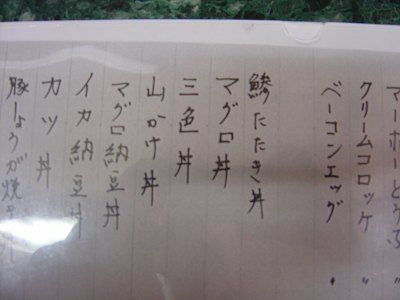 マーボーとうふ 〃
クリームコロッケ 〃
ベーコンエッグ 〃
鯵たたき丼
マグロ丼
三色丼
山かけ丼
マグロ納豆丼
イカ納豆丼
カツ丼
豚しょうが焼き